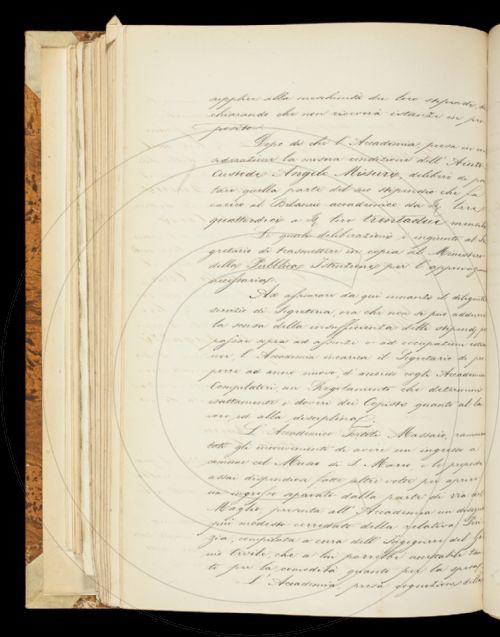 supplire alla meschinità dei loro stipendi, di
chiarando che non riceverà istanze in pro
posito.
Dopo di che l'Accademia, presa in con
siderazione la misera condizione dell'Aiuto
Custode Angelo Misuri, delibera di por
tare quella parte del suo stipendio che fa
carico al Bilancio accademico da lire
quattordici a lire trentadue mensili
La quale deliberazione è ingiunto al Se
gretario di trasmettere in copia al Ministero
della Pubblica Istruzione per l'approvazione
necessaria.
Ad assicurare da qui innanzi il diligente
servizio di Segreteria, ora che non si può addurre
la scusa della insufficienza dello stipendio per
passar sopra ad assenze o ad occupazioni estra
nee, l'Accademia incarica il Segretario di pro
porre ad anno nuovo, d'accordo cogli Accademici
Compilatori, un Regolamento che determini
esattamente i doveri dei Copisti quanto al la
voro, ed alla disciplina.
L'Accademico Tortoli Massaio, rammen
tati gli inconvenienti di avere un ingresso a
comune col Museo di S. Marco, e le proposte
assai dispendiose fatte altre volte per aprire
un ingresso separato dalla parte di via del
Maglio, presenta all'Accademia un disegno
più modesto corredato della relativa Peri
zia, compilata a cura dell'Ingegnere del Ge
nio Civile, che a lui parrebbe accettabile tan
to per la comodità quanto per la spesa.
L'Accademia, presa cognizione della